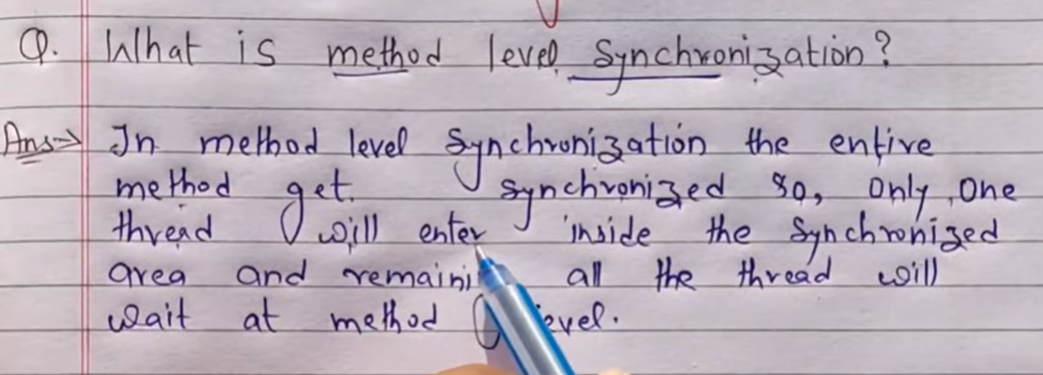 Q. What is method level synchronization?
Ans→ In method level synchronization the entire
method get synchronized so, only one
thread will enter inside the synchronized
area and remaini all the thread will
wait at method level.